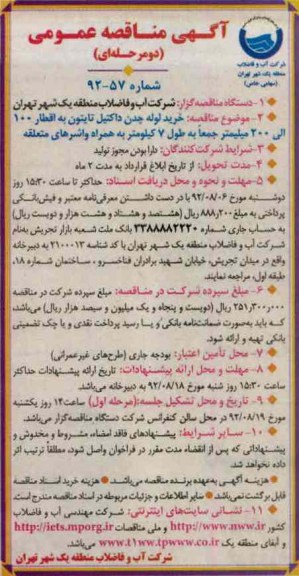 آگهی مناقصه عمومی
(دومرحله‌ای)
شماره ۵۷-۹۲
شرکت آب و فاضلاب
منطقه یک شهر تهران
(سهامی خاص)
۱- دستگاه مناقصه‌گزار: شرکت آب و فاضلاب منطقه یک شهر تهران
۲- موضوع مناقصه: خرید لوله چدن داکتیل تایتون به اقطار ۱۰۰
الی ۲۰۰ میلیمتر جمعاً به طول ۷ کیلومتر به همراه واشرهای متعلقه
۳- شرایط شرکت‌کنندگان: دارا بودن مجوز تولید
۴- مدت تحویل: از تاریخ ابلاغ قرارداد به مدت ۲ ماه
۵- مهلت و نحوه و محل دریافت اسناد: حداکثر تا ساعت ۱۵:۳۰ روز
دوشنبه مورخ ۹۲/۰۸/۰۶ با در دست داشتن معرفی‌نامه معتبر و فیش بانکی
پرداختی به مبلغ ۸۸۸,۲۰۰ ریال (هشتصد و هشتاد و هشت هزار و دویست ریال)
به حساب جاری شماره ۳۳۸۸۸۸۲۲۲۰ بانک ملت شعبه بازار تجریش به‌نام
شرکت آب و فاضلاب منطقه یک شهر تهران با کد شناسه ۲۱۰۰۰۱۳ به دبیرخانه
واقع در میدان تجریش، خیابان شهید برادران فناخسرو، ساختمان شماره ۱۸،
طبقه اول، مراجعه نمایند.
۶- مبلغ سپرده شرکت در مناقصه: مبلغ سپرده شرکت در مناقصه
۲۵۱,۳۰۰,۰۰۰ ریال (دویست و پنجاه و یک میلیون و سیصد هزار ریال) می‌باشد،
که باید به‌صورت ضمانتنامه بانکی و یا رسید پرداخت نقدی و یا چک تضمینی
بانکی تهیه و ارائه شود.
۷- محل تأمین اعتبار: بودجه جاری (طرح‌های غیرعمرانی)
۸- مهلت و محل ارائه پیشنهادات: تاریخ ارائه پیشنهادات حداکثر
ساعت ۱۵:۳۰ روز شنبه مورخ ۹۲/۰۸/۱۸ به دبیرخانه می‌باشد.
۹- تاریخ و محل تشکیل جلسه: (مرحله اول) ساعت ۱۴ روز یکشنبه
مورخ ۹۲/۰۸/۱۹ در محل سالن کنفرانس شرکت دستگاه مناقصه‌گزار می‌باشد.
۱۰- سایر شرایط: پیشنهادهای فاقد امضاء، مشروط و مخدوش و
پیشنهاداتی که پس از انقضاء مدت مقرر در فراخوان واصل شود، مطلقاً ترتیب اثر
داده نخواهد شد.
هزینه آگهی به‌عهده برنده مناقصه می‌باشد. هزینه خرید اسناد مناقصه
قابل برگشت نمی‌باشد. سایر اطلاعات و جزئیات مربوطه در اسناد مناقصه مندرج است.
۱۱- نشانی سایت‌های اینترنتی: شرکت مهندسی آب و فاضلاب
کشور http://www.nww.ir و ملی مناقصات http://iets.mporg.ir
و آبفای منطقه یک www.t1ww.tpww.co.ir می‌باشد.
شرکت آب و فاضلاب منطقه یک شهر تهران